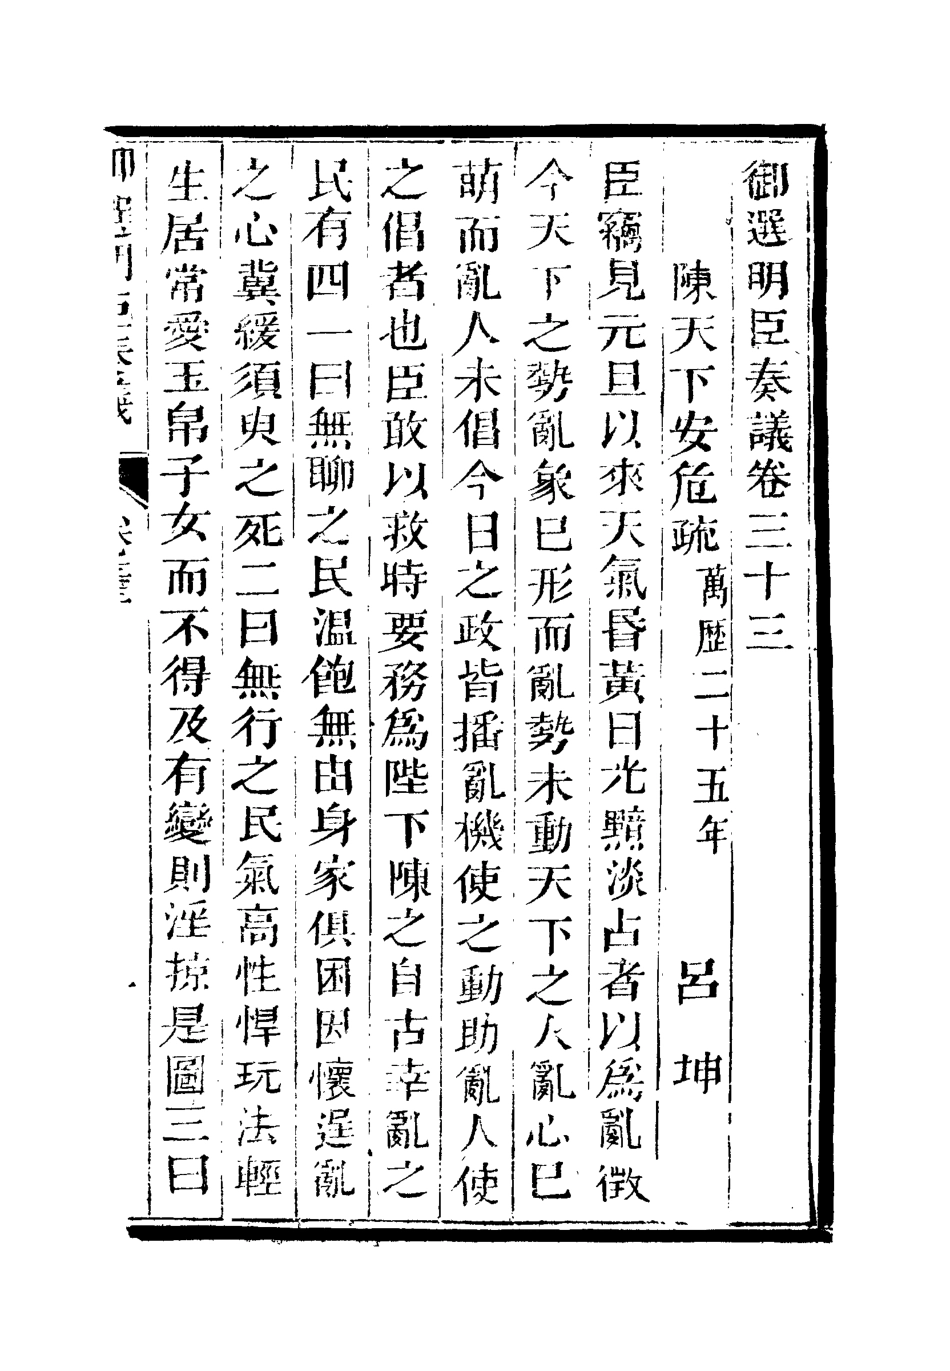 御選明臣奏議卷三十三
陳天下安危疏萬歷二十五年 呂坤
臣竊見元旦以來天氣昏黃日光黯淡占者以爲亂徵
今天下之勢亂象已形而亂勢未動天下之人亂心已
萌而亂人未倡今日之政皆播亂機使之動助亂人使
之倡者也臣敢以救時要務爲陛下陳之自古幸亂之
民有四一曰無聊之民溫飽無由身家俱困因懷逞亂
之心冀緩須臾之死二曰無行之民氣高性悍玩法輕
生居常愛玉帛子女而不得及有變則淫掠是圖三曰